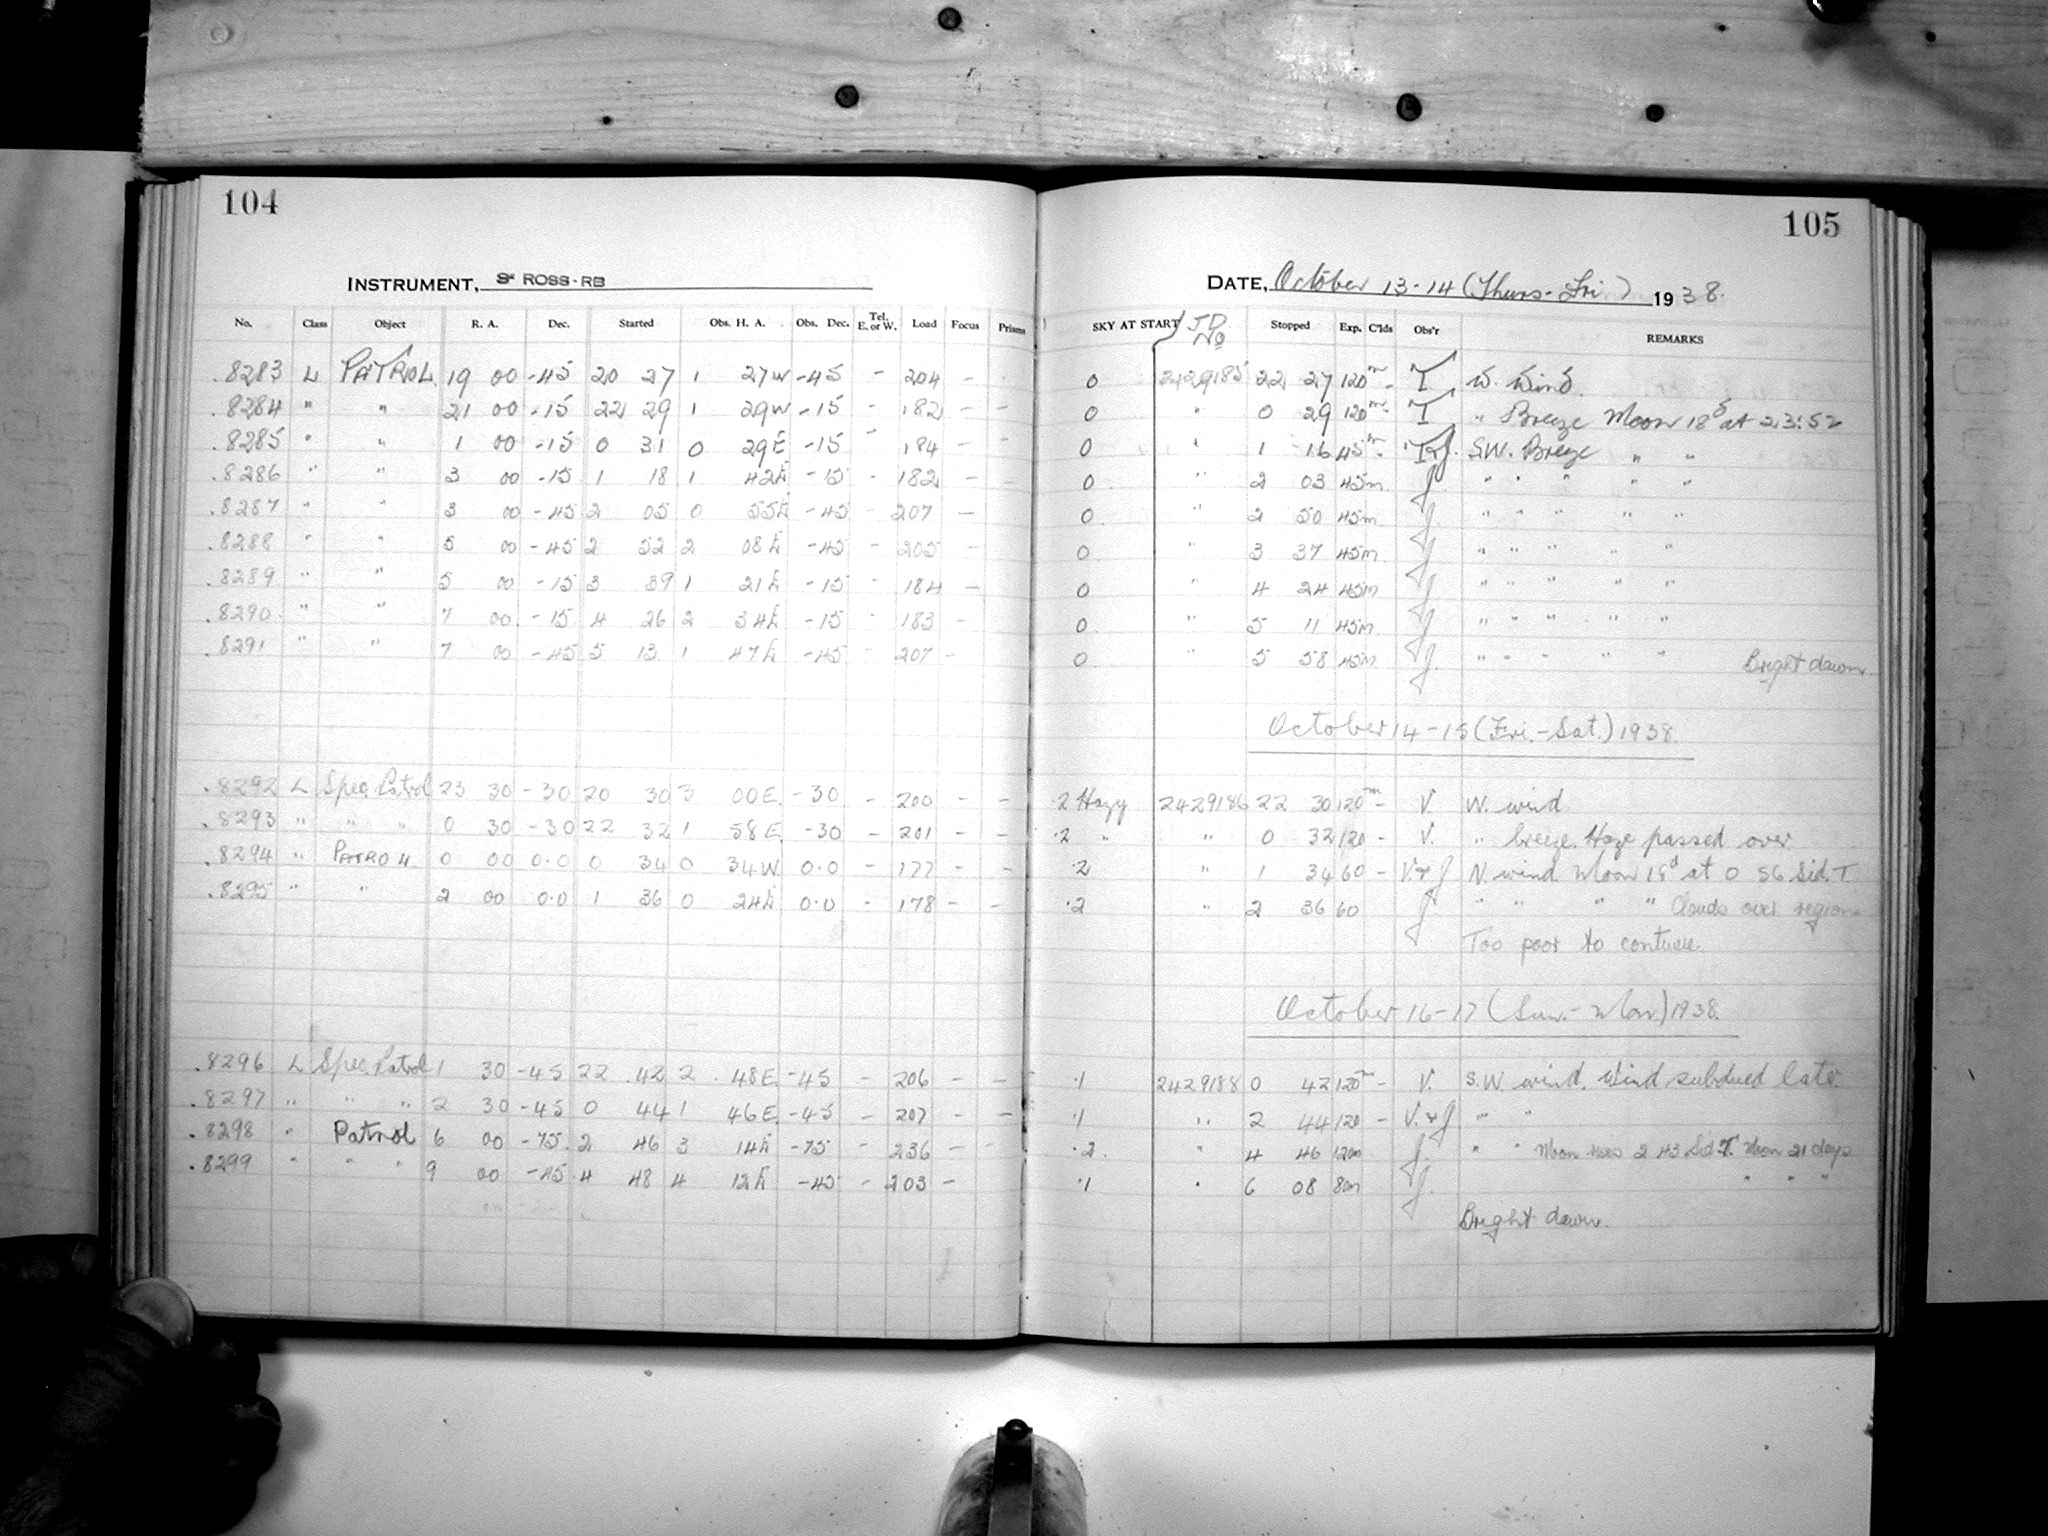 104
105
INSTRUMENT, 3" ROSS-RB
DATE, October 13-14 (Thurs-Fri.) 1938.
No. Class Object R. A. Dec. Started Obs. H. A. Obs. Dec. Tel. E. or W. Load Focus Prisms SKY AT START J.D. No Stopped Exp. C'lds Obs'r REMARKS
.8283 L PATROL 19 00 -45 20 27 1 27W -45 - 204 - 0 2429185 22 27 120m - T W. Wind.
.8284 " " 21 00 -15 22 29 1 29W -15 - 182 - - 0 " 0 29 120m - T " Breeze Moon 18d at 23:52
.8285 " " 1 00 -15 0 31 0 29E -15 - 184 - - 0 " 1 16 45m - S.W. Breeze " "
.8286 " " 3 00 -15 1 18 1 42E -15 - 182 - - 0 " 2 03 45m J. " " " " "
.8287 " " 3 00 -45 2 05 0 55E -45 - 207 - 0. " 2 50 45m J. " " " " "
.8288 " " 5 00 -45 2 52 2 08E -45 - 205 - 0. " 3 37 45m J. " " " " "
.8289 " " 5 00 -15 3 39 1 21E -15 - 184 - 0 " 4 24 45m J. " " " " "
.8290. " " 7 00 -15 4 26 2 34E -15 - 183 - 0. " 5 11 45m J. " " " " "
.8291 " " 7 00 -45 5 13 1 47E -45 - 207 - 0. " 5 58 45m J. " " " " " Bright dawn
October 14-15 (Fri.-Sat.) 1938.
.8292 L Spec. Patrol 23 30 -30 20 30 3 00E. -30 - 200 - - .2 Hazy 2429186 22 30 120m - V. W. wind
.8293 " " " 0 30 -30 22 32 1 58E -30 - 201 - - .2 " " 0 32 120 - V. " breeze. Haze passed over
.8294 " PATROL 0 00 0.0 0 34 0 34W 0.0 - 177 - - .2 " 1 34 60 - V.+J N. wind Moon 19d at 0 56 Sid. T.
.8295 " " 2 00 0.0 1 36 0 24E 0.0 - 178 - - .2 " 2 36 60 J " " " " Clouds over region
Too poor to continue.
October 16-17 (Sun.-Mon) 1938.
.8296 L Spec. Patrol 1 30 -45 22 42 2 48E. -45 - 206 - - .1 2429188 0 42 120m - V. S.W. wind. Wind subdued late.
.8297 " " " 2 30 -45 0 44 1 46E. -45 - 207 - - .1 " 2 44 120 - V.+J " "
.8298 " Patrol 6 00 -75 2 46 3 14E -75 - 236 - - .2 " 4 46 120m J. " " Moon rises 2 43 Sid. T. Moon 21 days
.8299 " " " 9 00 -45 4 48 4 12E -45 - 203 - .1 " 6 08 80m J. " " "
Bright dawn.